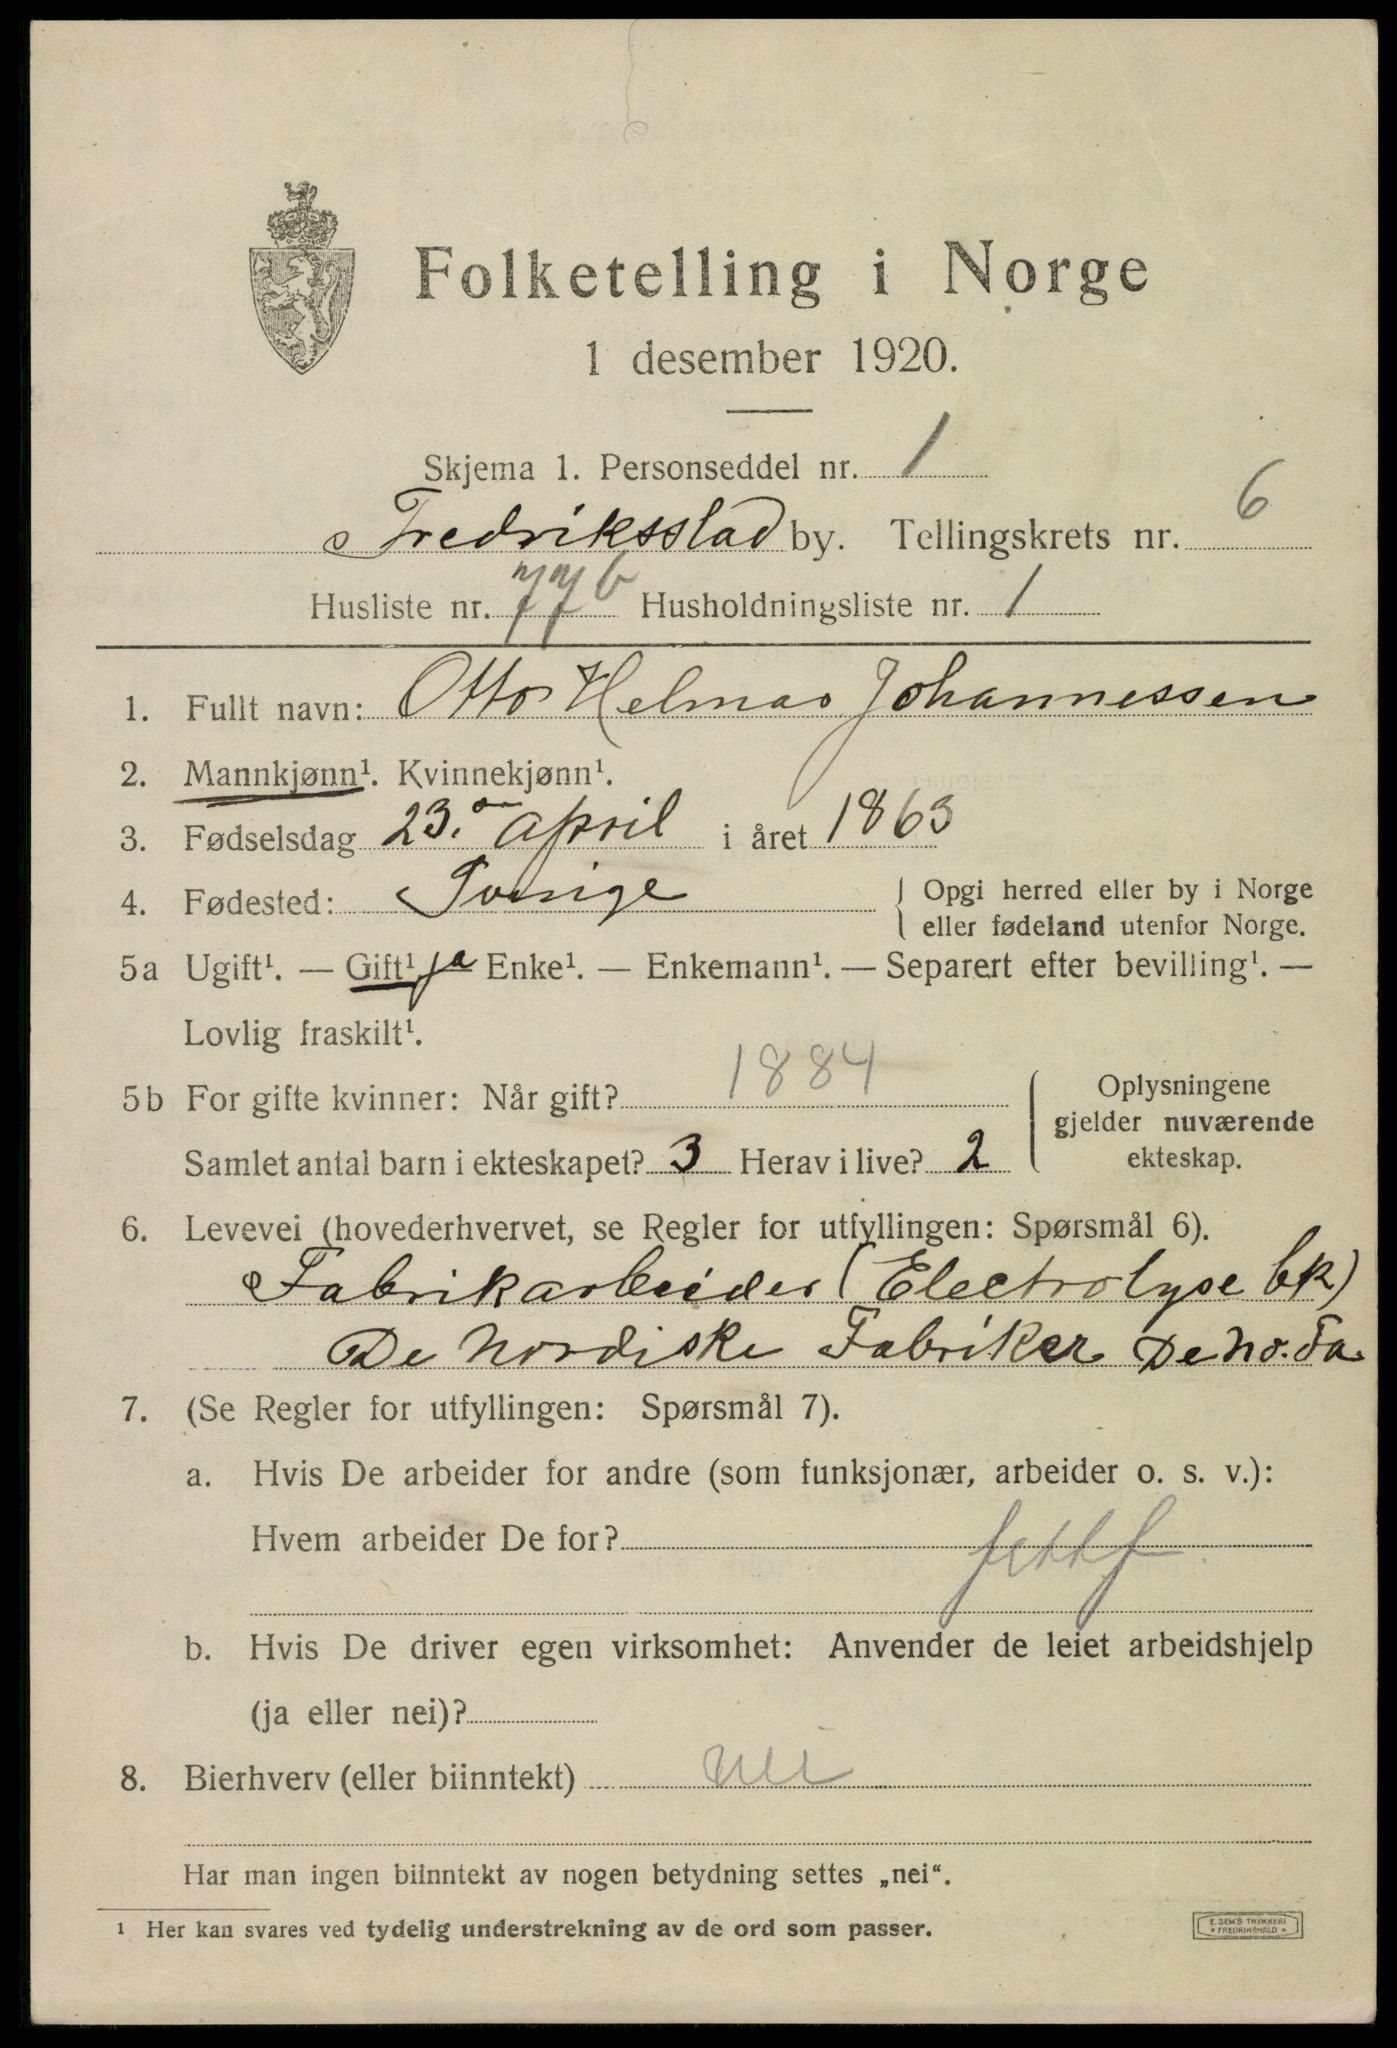 Folketelling i Norge
1 desember 1920.
Skjema 1. Personseddel nr. 1
Fredriksstad by. Tellingskrets nr. 6
Husliste nr. 77b Husholdningsliste nr. 1
1. Fullt navn: Otto Helmar Johannessen
2. Mannkjønn¹. Kvinnekjønn¹.
3. Fødselsdag 23. april i året 1863
4. Fødested: Sverige
Opgi herred eller by i Norge
eller fødeland utenfor Norge.
5a Ugift¹. — Gift¹ ja Enke¹. — Enkemann¹. — Separert efter bevilling¹. —
Lovlig fraskilt¹.
5b For gifte kvinner: Når gift? 1884
Samlet antal barn i ekteskapet? 3 Herav i live? 2
Oplysningene
gjelder nuværende
ekteskap.
6. Levevei (hovederhvervet, se Regler for utfyllingen: Spørsmål 6).
Fabrikarbeider (Electrolyse bk)
De Nordiske Fabriker De No. Fa
7. (Se Regler for utfyllingen: Spørsmål 7).
a. Hvis De arbeider for andre (som funksjonær, arbeider o. s. v.):
Hvem arbeider De for? fettf.
b. Hvis De driver egen virksomhet: Anvender de leiet arbeidshjelp
(ja eller nei)?
8. Bierhverv (eller biinntekt) nei
Har man ingen biinntekt av nogen betydning settes „nei“.
¹ Her kan svares ved tydelig understrekning av de ord som passer.
E. SEM'S TRYKKERI
* FREDRIKSHALD *